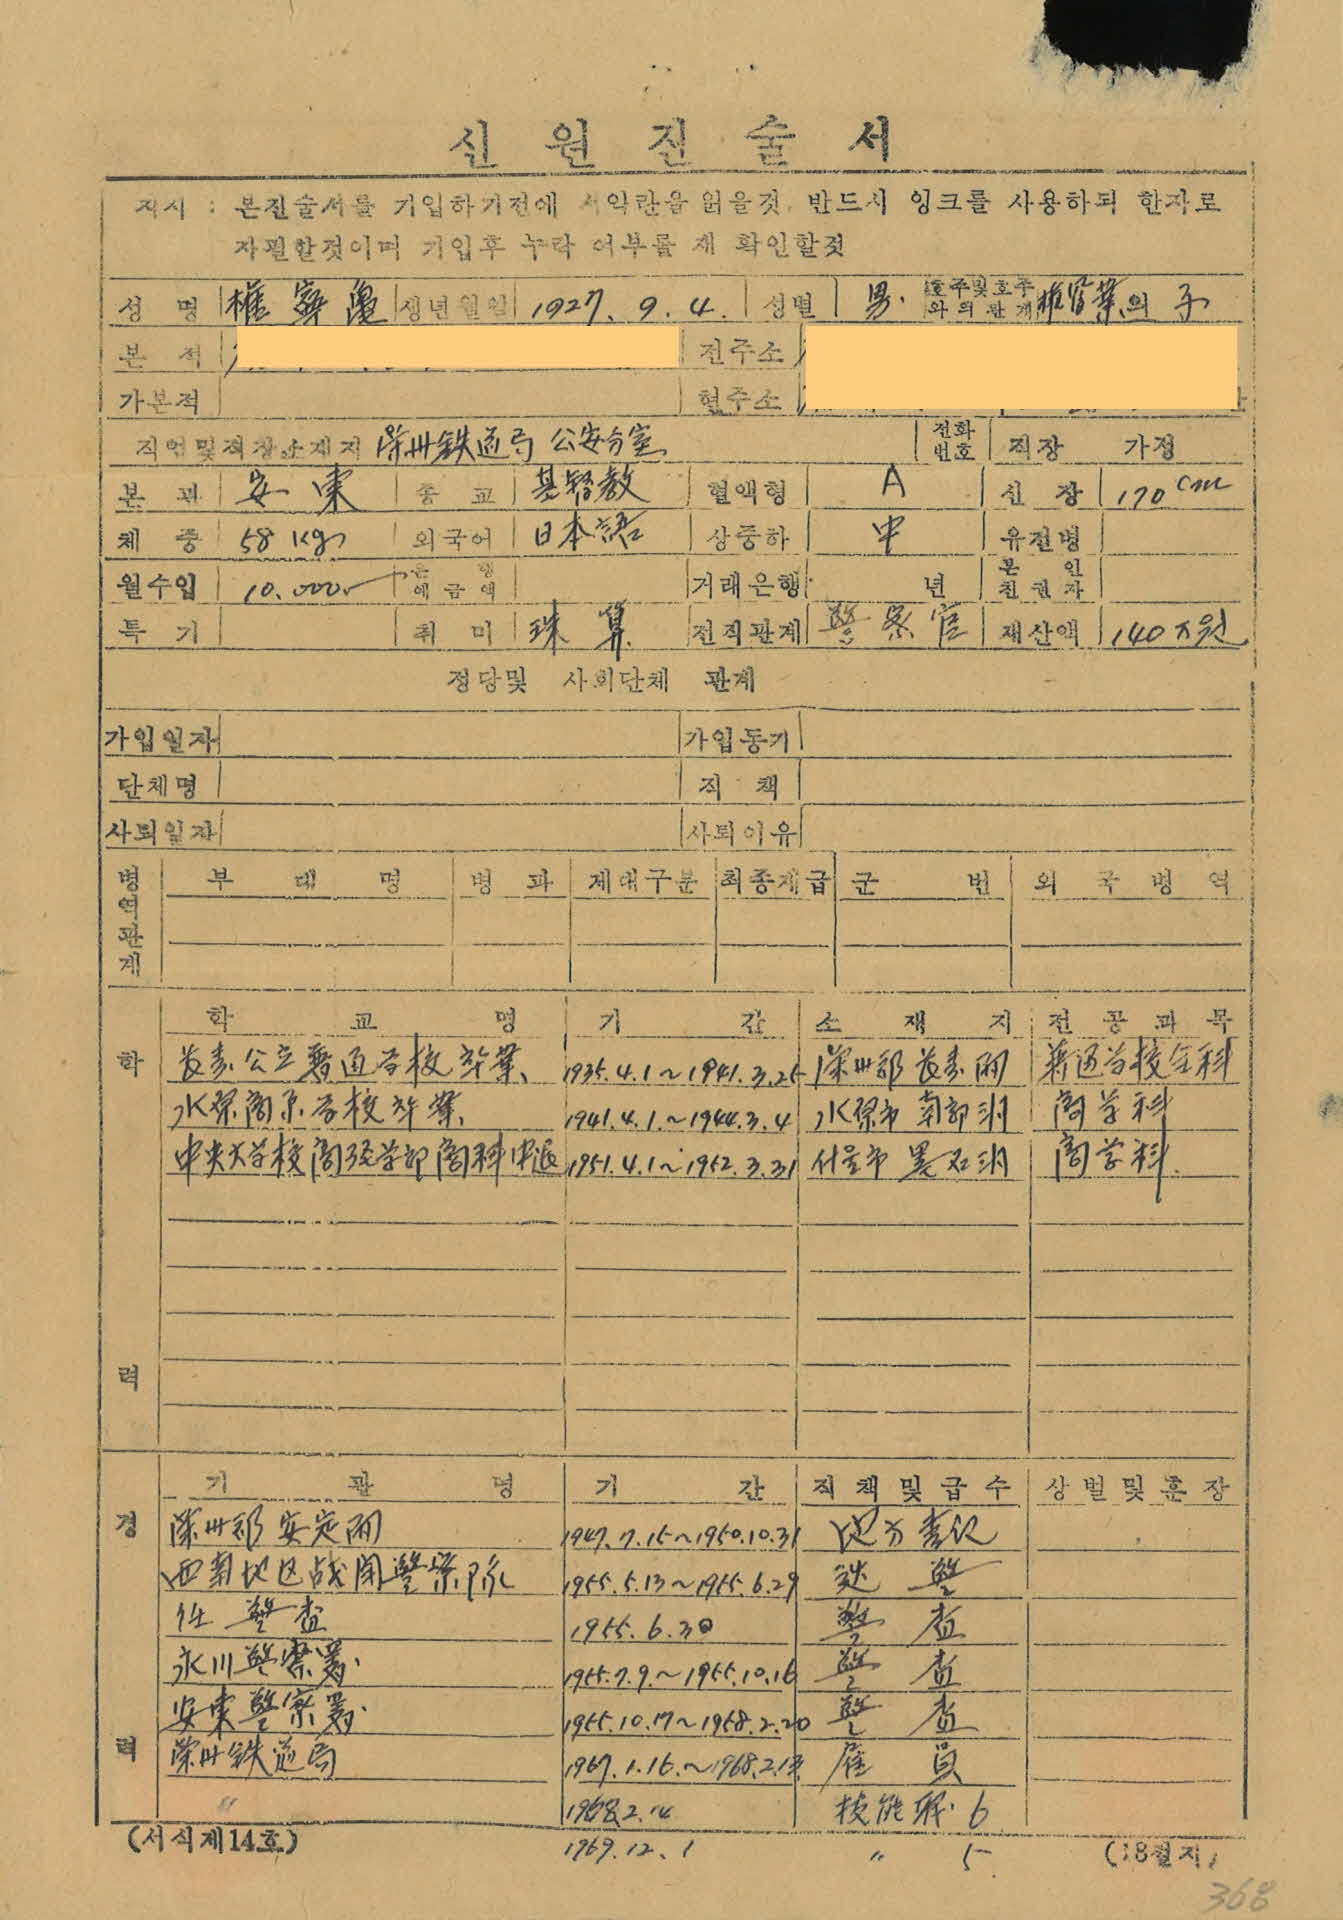 신원진술서
지시 : 본진술서를 기입하기전에 서약란을 읽을것. 반드시 잉크를 사용하되 한자로
자필할것이며 기입후 누락 여부를 재 확인할것
성명 權寧龜 생년월일 1927. 9. 4. 성별 男. 호주및호주와의관계 權 業의 子
본적 전주소
가본적 현주소
직업및직장소재지 榮州鉄道局 公安分室 전화번호 직장 가정
본관 安東 종교 基督教 혈액형 A 신장 170cm
체중 58Kg 외국어 日本語 상중하 中 유전병
월수입 10.000 은행예금액 거래은행 년 본인친권자
특기 취미 珠算 전직관계 警察官 재산액 140万원
정당및 사회단체 관계
가입일자 가입동기
단체명 직책
사퇴일자 사퇴이유
병역관계 부대명 병과 제대구분 최종계급 군번 외국병역
학력 학교명 기간 소재지 전공과목
長壽公立普通学校 卒業. 1935.4.1~1941.3.25 榮州郡長壽面 普通学校全科
水原商業学校 卒業. 1941.4.1~1944.3.4 水原市 南部洞 商学科
中央大学校 商経学部 商科 中退 1951.4.1~1952.3.31 서울市 黑石洞 商学科.
경력 기관명 기간 직책및급수 상벌및훈장
榮州郡 安定面 1947.7.15~1950.10.31 地方書記
西南地区战闘警察隊 1955.5.13~1955.6.29 警
任 警査 1955.6.30 警査
永川警察署. 1955.7.9.~1955.10.16 警査
安東警察署. 1955.10.17~1958.2.20 警査
榮州鉄道局 1967.1.16.~1968.2.13 雇員
〃 1968.2.14 技能職. 6
1969.12.1 〃 5
(서식제14호) (18절지)
368